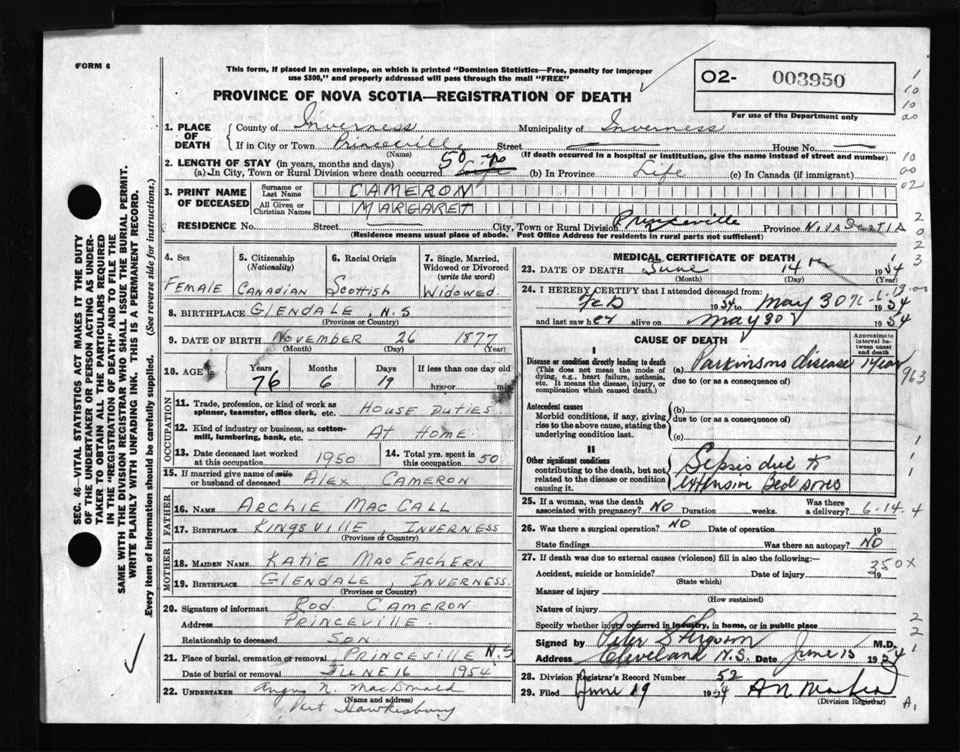 FORM 6
This form, if placed in an envelope, on which is printed "Dominion Statistics—Free, penalty for improper
use $300," and properly addressed will pass through the mail "FREE"
PROVINCE OF NOVA SCOTIA—REGISTRATION OF DEATH
02- 003950
For use of the Department only
1. PLACE OF DEATH County of Inverness Municipality of Inverness
If in City or Town Princeville Street — House No. —
(Name) (If death occurred in a hospital or institution, give the name instead of street and number)
2. LENGTH OF STAY (in years, months and days)
(a) In City, Town or Rural Division where death occurred 50 yrs (b) In Province Life (c) In Canada (if immigrant)
3. PRINT NAME OF DECEASED Surname or Last Name CAMERON
All Given or Christian Names MARGARET
RESIDENCE No. Street City, Town or Rural Division Princeville Province NOVA SCOTIA
(Residence means usual place of abode. Post Office Address for residents in rural parts not sufficient)
4. Sex FEMALE
5. Citizenship (Nationality) CANADIAN
6. Racial Origin SCOTTISH
7. Single, Married, Widowed or Divorced (write the word) WIDOWED
8. BIRTHPLACE GLENDALE, N.S
(Province or Country)
9. DATE OF BIRTH NOVEMBER 26 1877
(Month) (Day) (Year)
10. AGE Years 76 Months 6 Days 19 If less than one day
hrs. or min.
OCCUPATION
11. Trade, profession, or kind of work as spinner, teamster, office clerk, etc. HOUSE DUTIES
12. Kind of industry or business, as cotton-mill, lumbering, bank, etc. AT HOME
13. Date deceased last worked at this occupation 1950
14. Total yrs. spent in this occupation 50
15. If married give name of wife or husband of deceased ALEX CAMERON
FATHER
16. NAME ARCHIE MACCALL
17. BIRTHPLACE KINGSVILLE, INVERNESS
(Province or Country)
MOTHER
18. MAIDEN NAME KATIE MACEACHERN
19. BIRTHPLACE GLENDALE, INVERNESS.
(Province or Country)
20. Signature of informant ROD CAMERON
Address PRINCEVILLE
Relationship to deceased SON
21. Place of burial, cremation or removal PRINCEVILLE N.S
Date of burial or removal JUNE 16 1954
22. UNDERTAKER Angus N. MacDonald
(Name and address)
Port Hawkesbury
MEDICAL CERTIFICATE OF DEATH
23. DATE OF DEATH June 14th 1954
(Month) (Day) (Year)
24. I HEREBY CERTIFY that I attended deceased from:
Feb 1954 May 30 1954
and last saw her alive on May 30 1954
CAUSE OF DEATH
Approximate interval between onset and death
I
Disease or condition directly leading to death
(This does not mean the mode of dying, e.g., heart failure, asthenia, etc. It means the disease, injury, or complication which caused death.)
(a) Parkinsons disease 1 year
due to (or as a consequence of)
963
Antecedent causes
Morbid conditions, if any, giving rise to the above cause, stating the underlying condition last.
(b)
due to (or as a consequence of)
(c)
II
Other significant conditions
contributing to the death, but not related to the disease or condition causing it.
Sepsis due to
extensive Bed sores
25. If a woman, was the death associated with pregnancy? NO Duration weeks. Was there a delivery?
6-14-4
26. Was there a surgical operation? NO Date of operation 19
State findings Was there an autopsy? NO
27. If death was due to external causes (violence) fill in also the following:—
350X
Accident, suicide or homicide? Date of injury 19
(State which)
Manner of injury
(How sustained)
Nature of injury
Specify whether injury occurred in industry, in home, or in public place
Signed by Peter S Ferguson M.D.
Address Cleveland N.S. Date June 15 1954
28. Division Registrar's Record Number 52
29. Filed June 19 1954
(Division Registrar)
SEC. 46—VITAL STATISTICS ACT MAKES IT THE DUTY
OF THE UNDERTAKER OR PERSON ACTING AS UNDER-
TAKER TO OBTAIN ALL THE PARTICULARS REQUIRED
IN THE "REGISTRATION OF DEATH" AND TO FILE THE
SAME WITH THE DIVISION REGISTRAR WHO SHALL ISSUE THE BURIAL PERMIT.
WRITE PLAINLY WITH UNFADING INK. THIS IS A PERMANENT RECORD.
Every item of information should be carefully supplied. (See reverse side for instructions.)